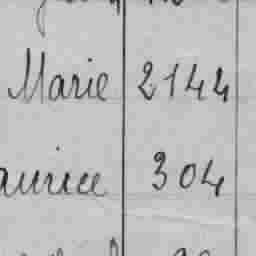 Marie 2144
aurice 304